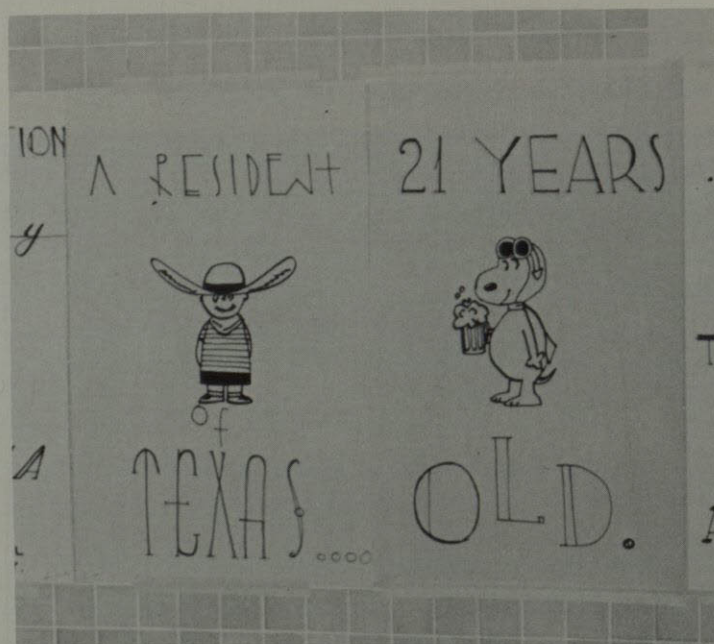 ION
y
A
A RESIDENT
Of
TEXAS....
21 YEARS
OLD.